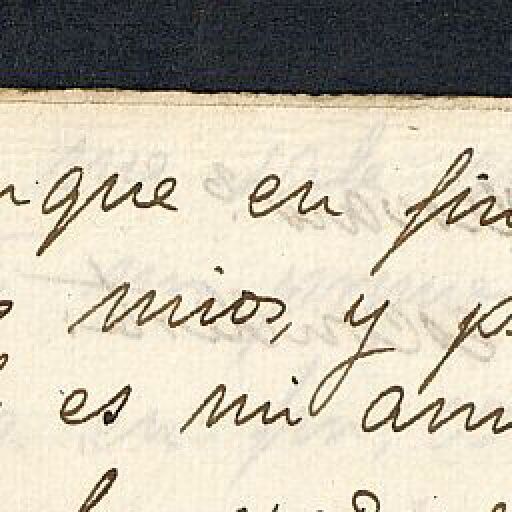 nque en fin
s mios, y ps
es mi am